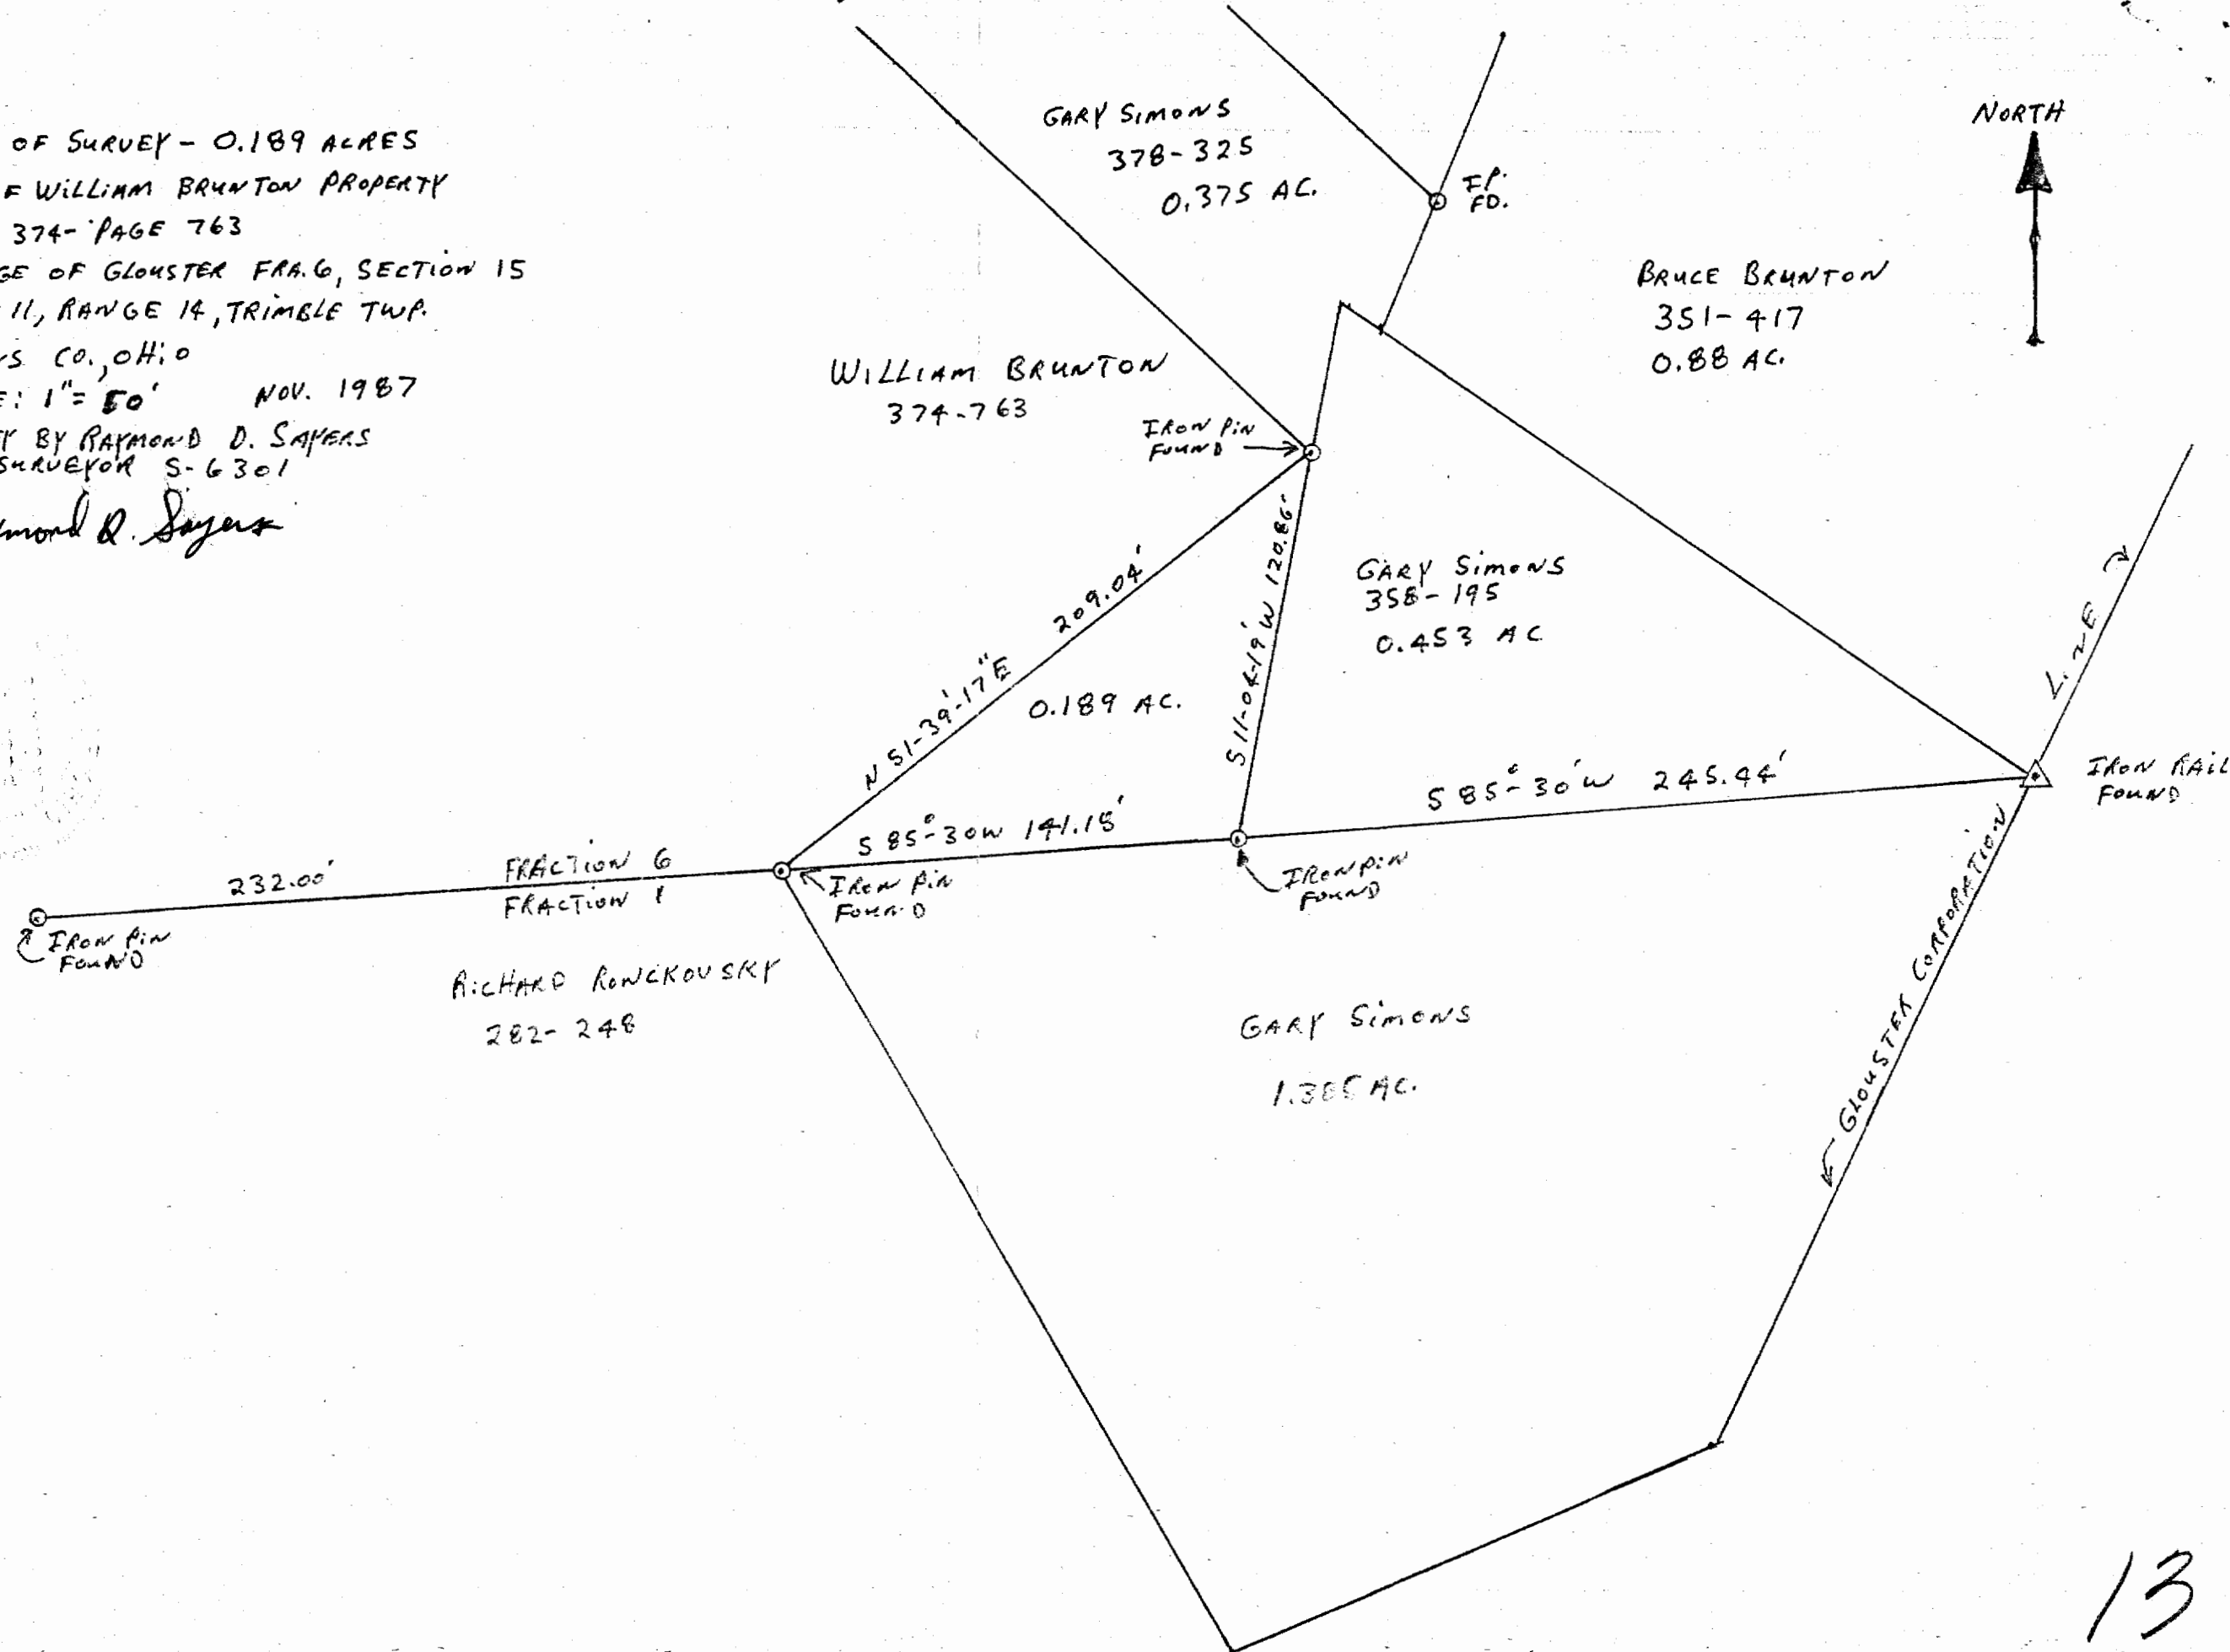 OF SURVEY - 0.189 ACRES
F WILLIAM BRUNTON PROPERTY
374- PAGE 763
GE OF GLOUSTER FRA. 6, SECTION 15
11, RANGE 14, TRIMBLE TWP.
S CO., OHIO
E: 1" = 50' NOV. 1987
Y BY RAYMOND D. SAYERS
SURVEYOR S-6301
mond D. Sayers
GARY SIMONS
378-325
0.375 AC.
I.P.
FD.
NORTH
BRUCE BRUNTON
351-417
0.88 AC.
WILLIAM BRUNTON
374-763
IRON PIN
FOUND
GARY SIMONS
358-195
0.453 AC
209.04'
N 51-39'-17"E
S 11-04-19'W 120.86'
0.189 AC.
LINE
S 85°-30'W 245.44'
IRON RAIL
FOUND
S 85°-30W 141.18'
IRON PIN
FOUND
IRON PIN
FOUND
232.00'
FRACTION 6
FRACTION 1
IRON PIN
FOUND
RICHARD RONCKOVSKY
282-248
GARY SIMONS
AC.
GLOUSTER CORPORATION
13